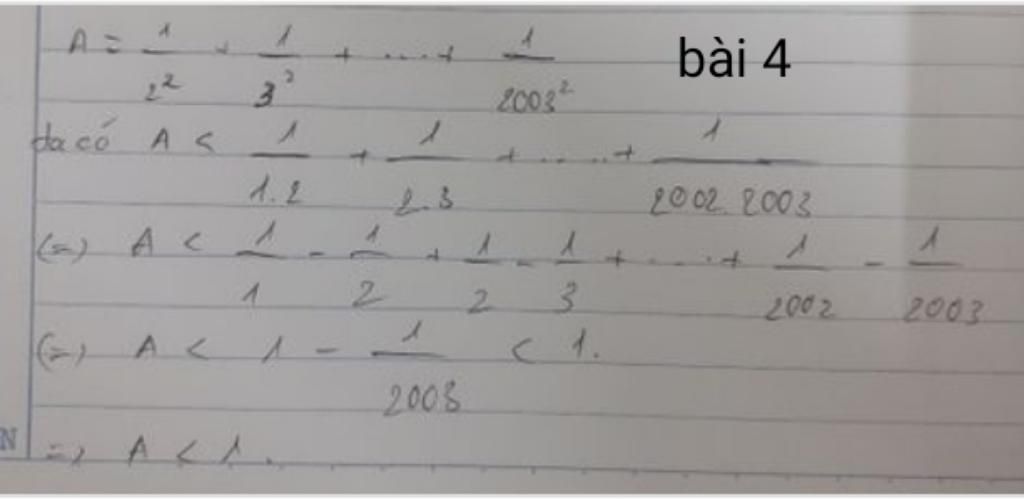 A = 1/2² + 1/3² + ....+ 1/2003² bài 4
ta có A < 1/1.2 + 1/2.3 + .....+ 1/2002.2003
(=) A < 1/1 - 1/2 + 1/2 - 1/3 + .....+ 1/2002 - 1/2003
(=) A < 1 - 1/2003 < 1.
N =) A < 1.